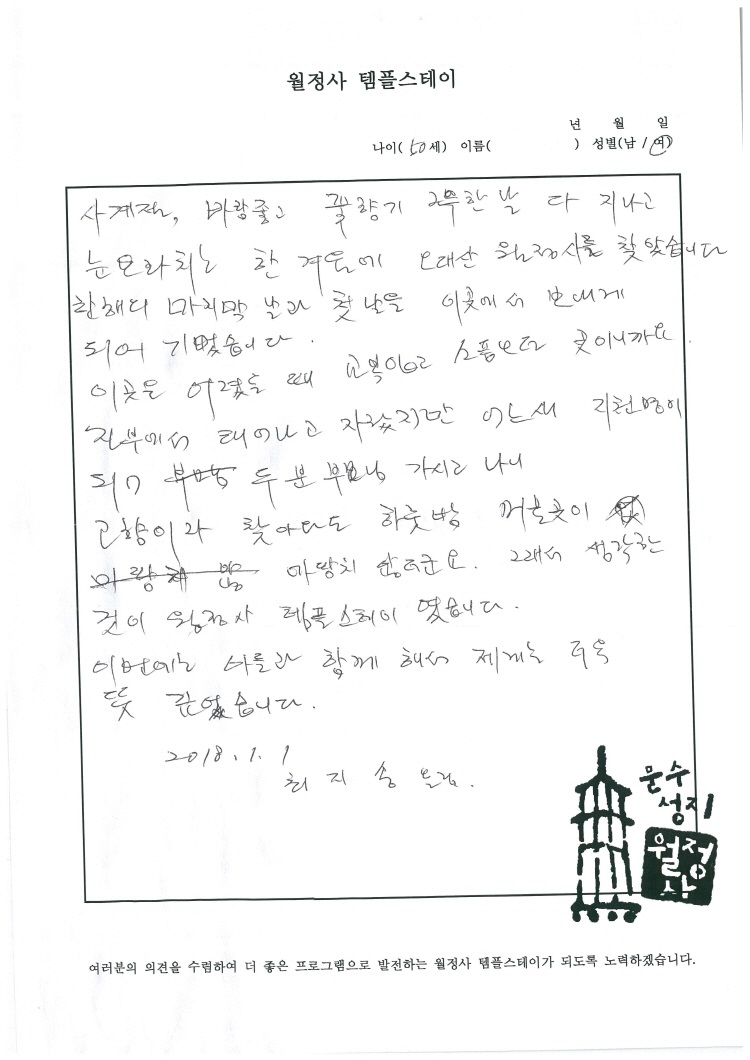 월정사 템플스테이
년 월 일
나이( 50세) 이름( ) 성별(남 / 여)
사계절, 바람좋고 꽃향기 그윽한 날 다 지나고
눈보라치는 한 겨울에 오대산 월정사를 찾았습니다
한해의 마지막 날과 첫날을 이곳에서 보내게
되어 기뻤습니다.
이곳은 어렸을 때 교복입고 소풍오던 곳이니까요.
진부에서 태어나고 자랐지만 어느새 지천명이
되고 두 분 부모님 가시고 나니
고향이라 찾아와도 하룻밤 머물곳이
마땅치 않더군요. 그래서 생각한
것이 월정사 템플스테이 였습니다.
이번에는 아들과 함께 해서 제게는 더욱
뜻 깊었습니다.
2018. 1. 1
최 지 송 드림.
문수
성지
월정
사
여러분의 의견을 수렴하여 더 좋은 프로그램으로 발전하는 월정사 템플스테이가 되도록 노력하겠습니다.